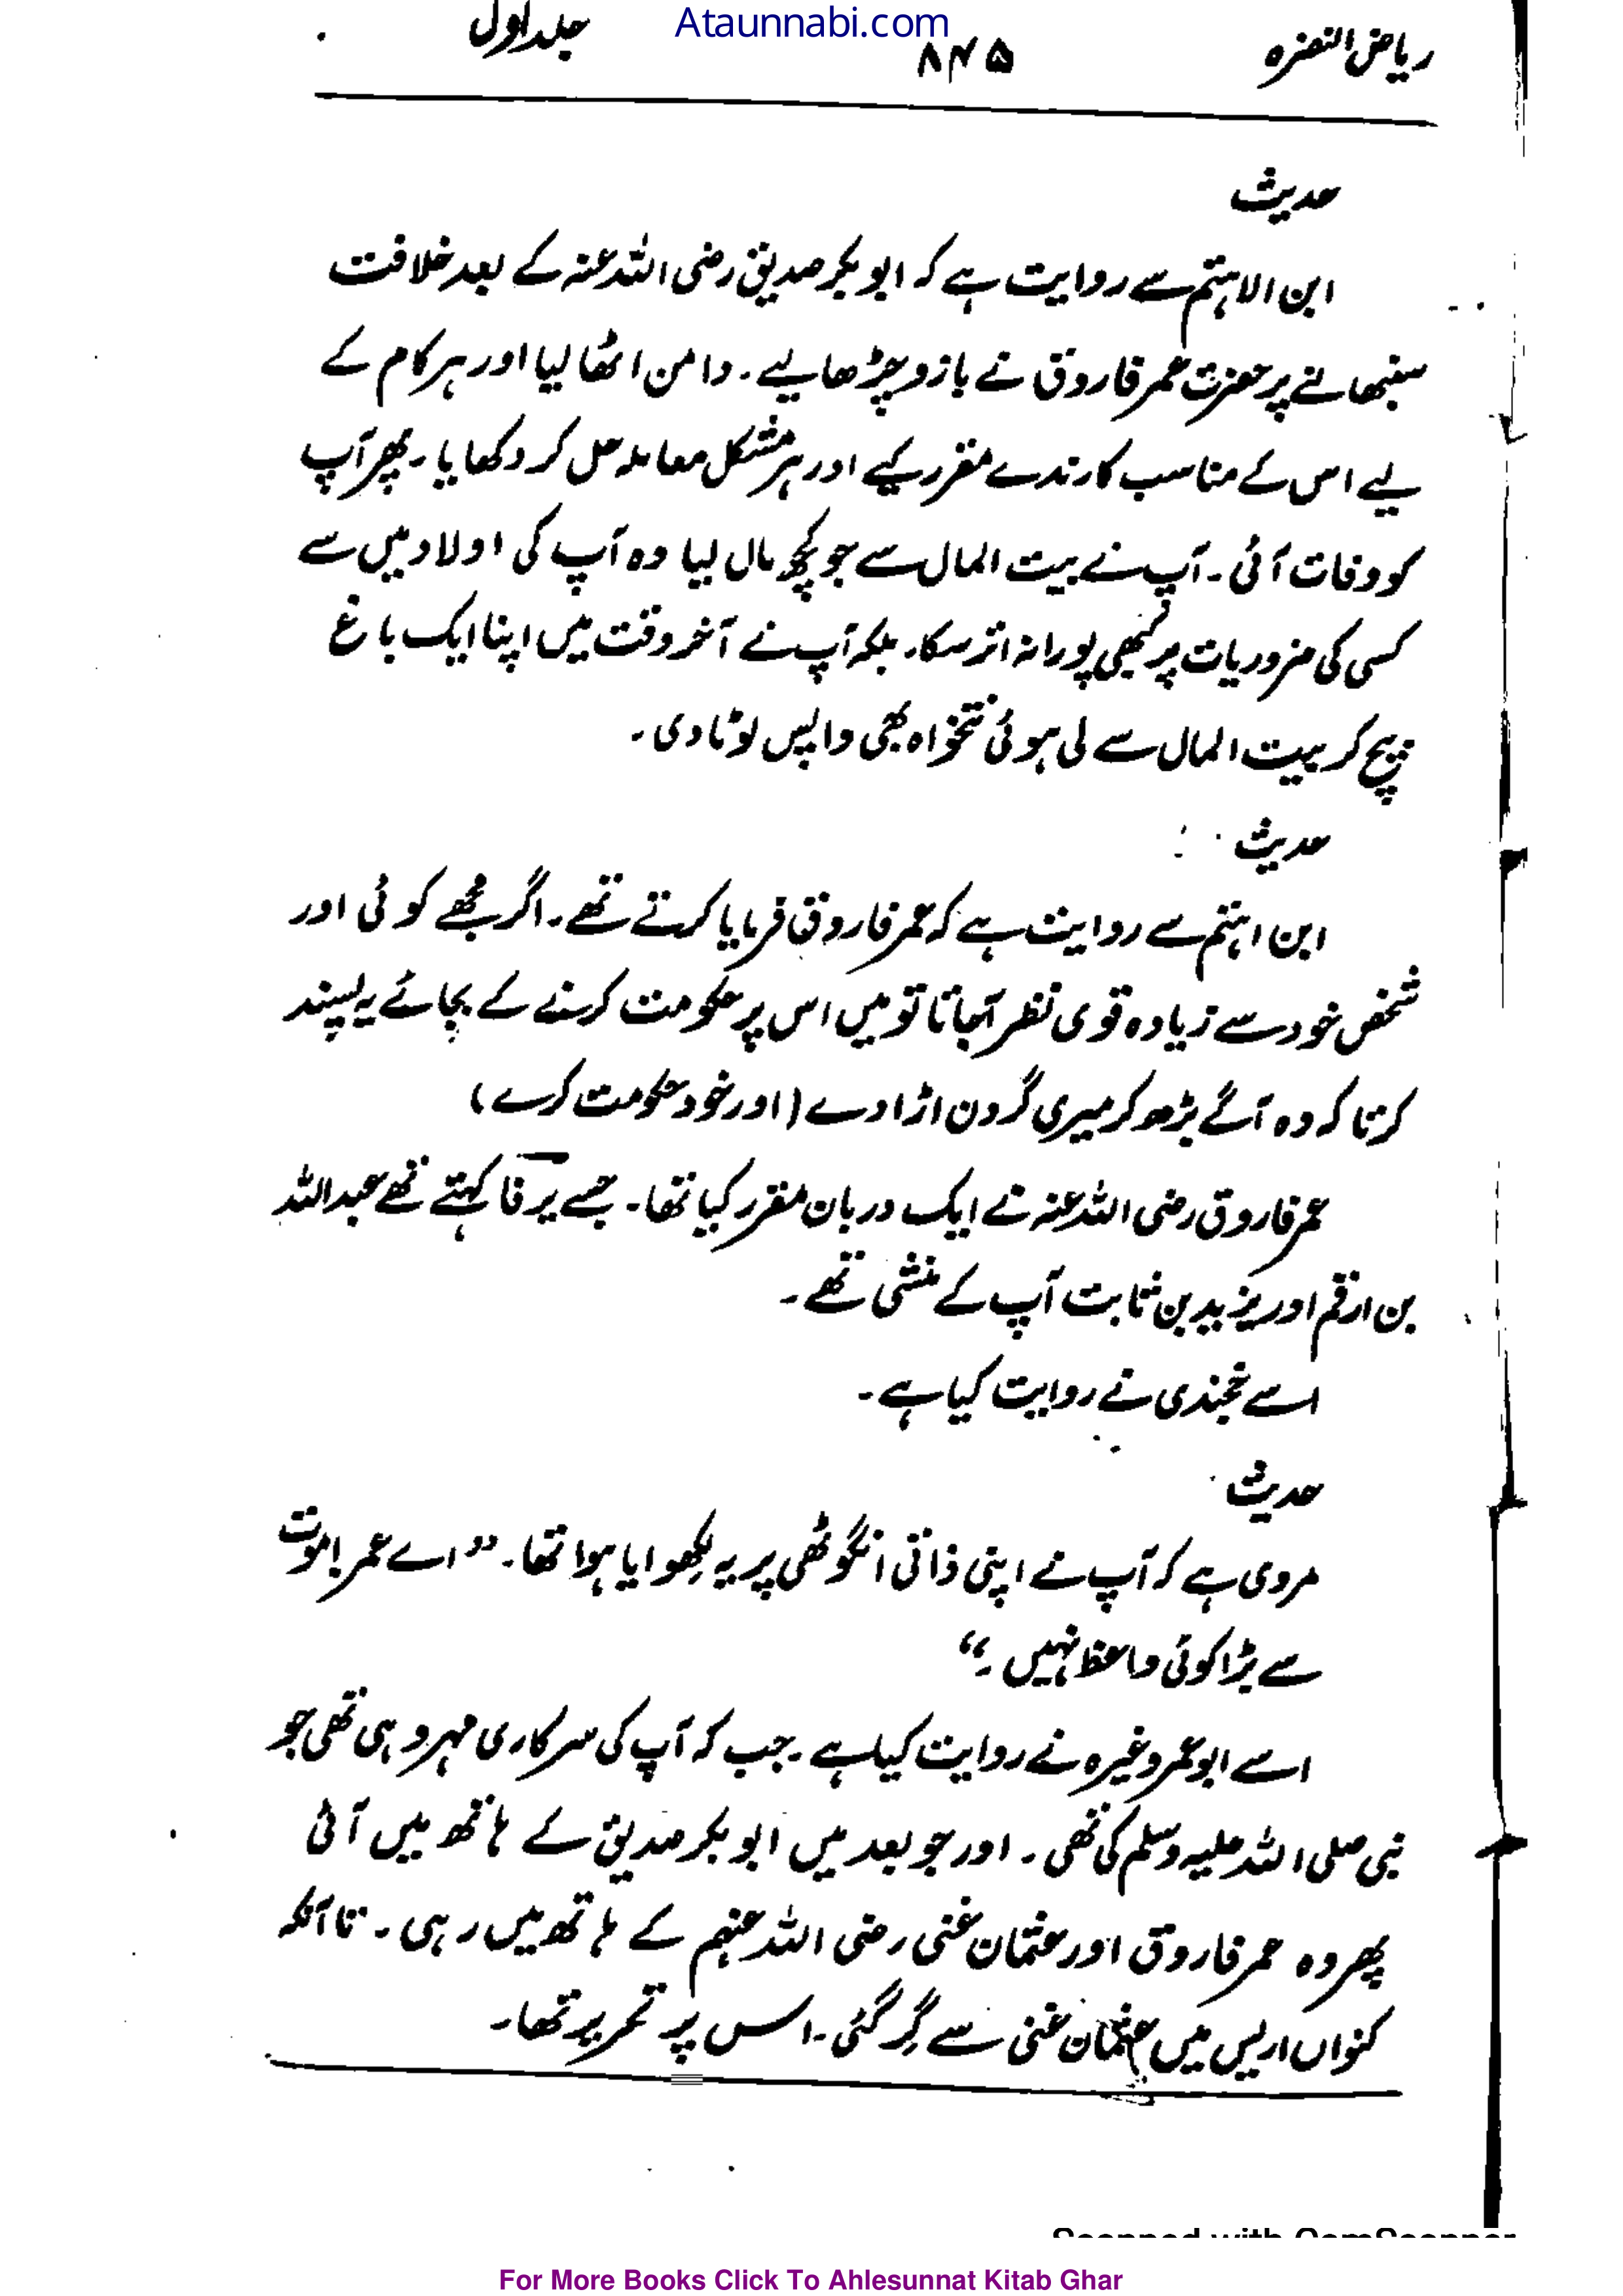 Ataunnabi.com
ریاض النضرہ ۸۴۵ جلد اول
حدیث
ابن الاہتم سے روایت ہے کہ ابو بکر صدیق رضی اللہ عنہ کے بعد خلافت
سنبھالنے پر حضرت عمر فاروق نے بازو چڑھا لیے۔ دامن اٹھا لیا اور ہر کام کے
لیے اس کے مناسب کارندے مقرر کیے اور ہر مشکل معاملہ حل کر دکھایا۔ پھر آپ
کو وفات آئی۔ آپ نے بیت المال سے جو کچھ مال لیا وہ آپ کی اولاد میں سے
کسی کی ضروریات پر کبھی پورا نہ اتر سکا۔ بلکہ آپ نے آخر وقت میں اپنا ایک باغ
بیچ کر بیت المال سے لی ہوئی تنخواہ بھی واپس لوٹا دی۔
حدیث
ابن اہتم سے روایت ہے کہ عمر فاروق فرمایا کرتے تھے۔ اگر مجھے کوئی اور
شخص خود سے زیادہ قوی نظر آجاتا تو میں اس پر حکومت کرنے کے بجائے یہ پسند
کرتا کہ وہ آگے بڑھ کر میری گردن اڑا دے (اور خود حکومت کرے)
عمر فاروق رضی اللہ عنہ نے ایک دربان مقرر کیا تھا۔ جسے یرفا کہتے تھے عبداللہ
بن ارقم اور یزید بن ثابت آپ کے منشی تھے۔
اسے خجندی نے روایت کیا ہے۔
حدیث
مروی ہے کہ آپ نے اپنی ذاتی انگوٹھی پر یہ لکھوایا ہوا تھا۔ ”اے عمر! موت
سے بڑا کوئی واعظ نہیں۔“
اسے ابو عمر وغیرہ نے روایت کیا ہے۔ جب کہ آپ کی سرکاری مہر وہی تھی جو
نبی صلی اللہ علیہ وسلم کی تھی۔ اور جو بعد میں ابو بکر صدیق کے ہاتھ میں آئی
پھر وہ عمر فاروق اور عثمان غنی رضی اللہ عنہم کے ہاتھ میں رہی۔ تا آنکہ
کنواں اریس میں عثمان غنی سے گر گئی۔ اس پر تحریر تھا۔
For More Books Click To Ahlesunnat Kitab Ghar